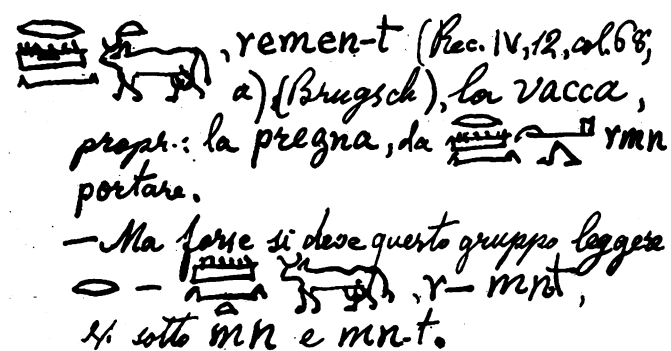 𓂋𓏠𓈖𓏏𓃒, remen-t (Rec. IV, 12, col. 68,
a) (Brugsch), la vacca,
propr.: la pregna, da 𓂋𓏠𓈖 rmn
portare.
— Ma forse si deve questo gruppo leggere
𓂋 – 𓏠𓈖𓏏𓃒, r – mnt,
sotto mn e mn-t.